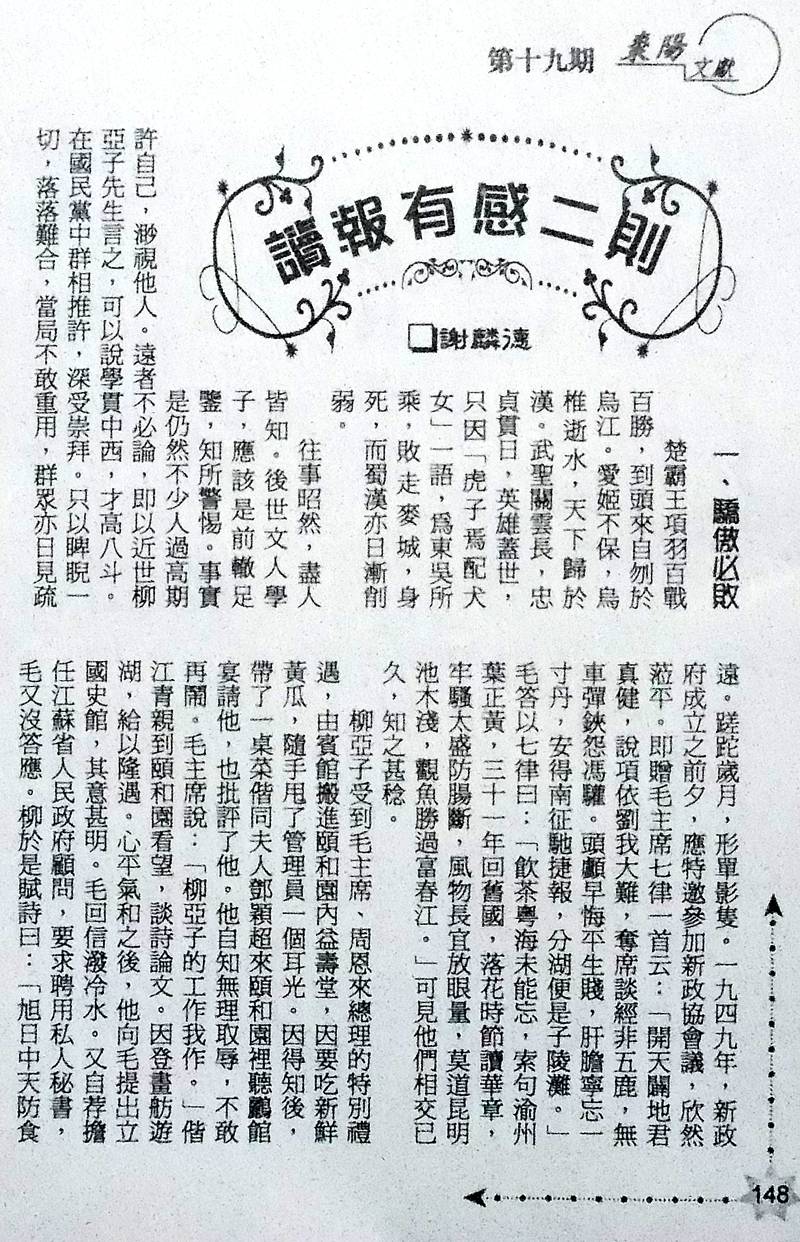 第十九期
棗陽
文獻
讀報有感二則
謝麟德
一、驕傲必敗
楚霸王項羽百戰
百勝，到頭來自刎於
烏江。愛姬不保，烏
椎逝水，天下歸於
漢。武聖關雲長，忠
貞貫日，英雄蓋世，
只因「虎子焉配犬
女」一語，為東吳所
乘，敗走麥城，身
死，而蜀漢亦日漸削
弱。
往事昭然，盡人
皆知。後世文人學
子，應該是前轍足
鑒，知所警惕。事實
是仍然不少人過高期
許自己，渺視他人。遠者不必論，即以近世柳
亞子先生言之，可以說學貫中西，才高八斗。
在國民黨中群相推許，深受崇拜。只以睥睨一
切，落落難合，當局不敢重用，群眾亦日見疏
遠。蹉跎歲月，形單影隻。一九四九年，新政
府成立之前夕，應特邀參加新政協會議，欣然
蒞平。即贈毛主席七律一首云：「開天闢地君
真健，說項依劉我大難，奪席談經非五鹿，無
車彈鋏怨馮驩。頭顱早悔平生賤，肝膽寧忘一
寸丹，安得南征馳捷報，分湖便是子陵灘。」
毛答以七律曰：「飲茶粵海未能忘，索句渝州
葉正黃，三十一年回舊國，落花時節讀華章，
牢騷太盛防腸斷，風物長宜放眼量，莫道昆明
池木淺，觀魚勝過富春江。」可見他們相交已
久，知之甚稔。
柳亞子受到毛主席、周恩來總理的特別禮
遇，由賓館搬進頤和園內益壽堂，因要吃新鮮
黃瓜，隨手甩了管理員一個耳光。因得知後，
帶了一桌菜偕同夫人鄧穎超來頤和園裡聽鸝館
宴請他，也批評了他。他自知無理取辱，不敢
再鬧。毛主席說：「柳亞子的工作我作。」偕
江青親到頤和園看望，談詩論文。因登畫舫遊
湖，給以隆遇。心平氣和之後，他向毛提出立
國史館，其意甚明。毛回信潑冷水。又自荐擔
任江蘇省人民政府顧問，要求聘用私人秘書，
毛又沒答應。柳於是賦詩曰：「旭日中天防食
148